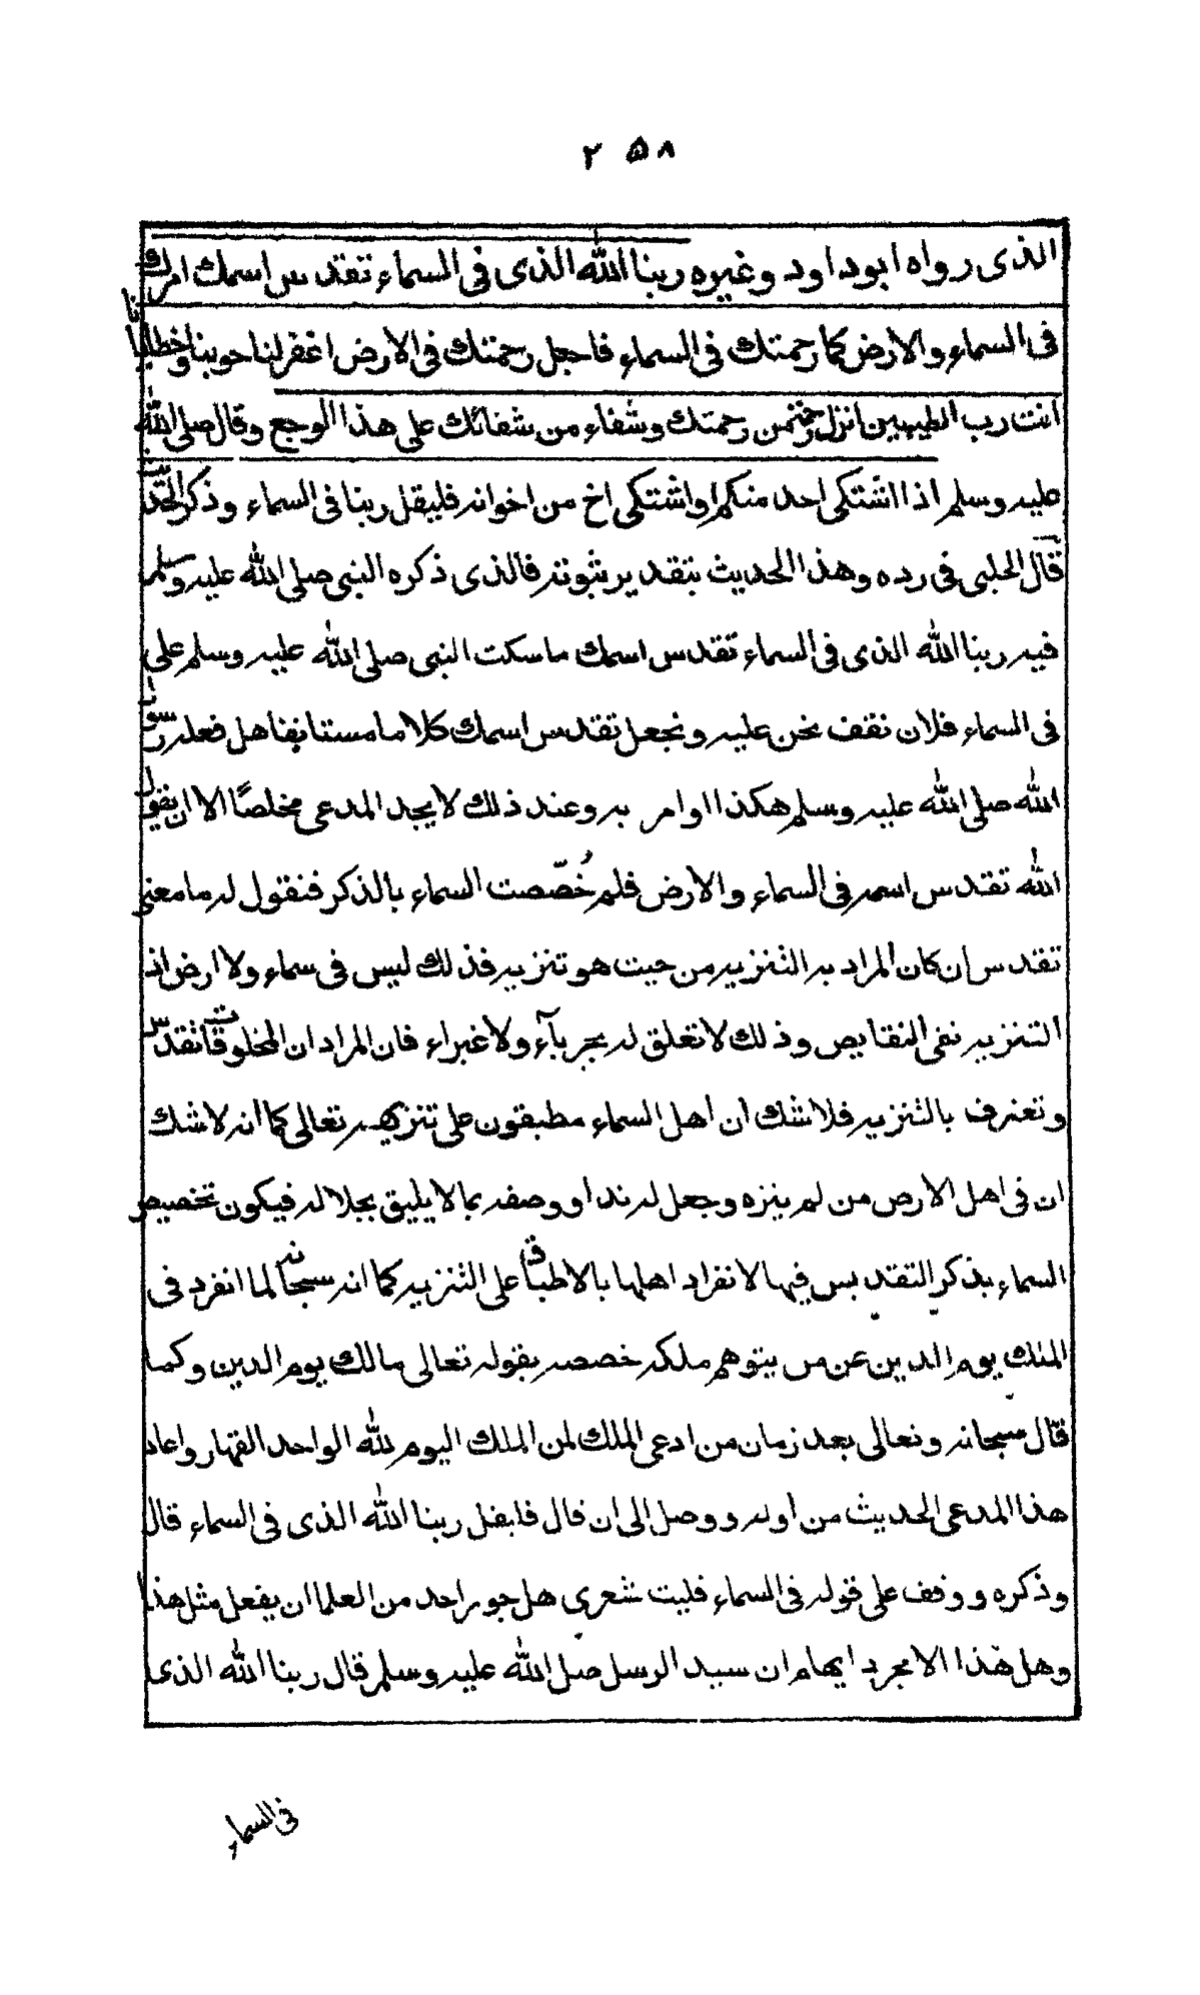 ٢٥٨
الذى رواه ابو داود وغيره ربنا الله الذى فى السماء تقدس اسمك امرك
فى السماء والارض كما رحمتك فى السماء فاجعل رحمتك فى الارض اغفر لنا حوبنا وخطايانا
انت رب الطيبين انزل رحمة من رحمتك وشفاء من شفائك على هذا الوجع وقال صلى الله
عليه وسلم اذا اشتكى احد منكم او اشتكى اخ من اخوانه فليقل ربنا فى السماء وذكر الحديث
قال الحلبى فى رده وهذا الحديث بتقدير ثبوته فالذى ذكره النبى صلى الله عليه وسلم
فيه ربنا الله الذى فى السماء تقدس اسمك ما سكت النبى صلى الله عليه وسلم على
فى السماء فلان نقف نحن عليه ونجعل تقدس اسمك كلاما مستانفا هل فعله رسول
الله صلى الله عليه وسلم هكذا او امر به وعند ذلك لا يجد المدعى مخلصًا الا ان يقول
الله تقدس اسمه فى السماء والارض فلم خُصّصت السماء بالذكر فنقول له ما معنى
تقدس ان كان المراد به التنزيه من حيث هو تنزيه فذلك ليس فى سماء ولا ارض اذ
التنزيه نفى النقايص وذلك لا تعلق له بجرباء ولا غبراء فان المراد ان المخلوقات تقدس
وتعترف بالتنزيه فلا شك ان اهل السماء مطبقون على تنزيهه تعالى كما انه لا شك
ان فى اهل الارض من لم ينزه وجعل له ندا او وصفه بما لا يليق بجلاله فيكون تخصيص
السماء بذكر التقديس فيها لانفراد اهلها بالاطباق على التنزيه كما انه سبحانه لما انفرد فى
الملك يوم الدين عن من يتوهم ملكه خصصه بقوله تعالى مالك يوم الدين وكما
قال سبحانه وتعالى بعد زمان من ادعى الملك لمن الملك اليوم لله الواحد القهار واعاد
هذا المدعى الحديث من اوله ووصل الى ان قال فليقل ربنا الله الذى فى السماء قال
وذكره ووقف على قوله فى السماء فليت شعرى هل جوز احد من العلما ان يفعل مثل هذا
وهل هذا الا مجرد ايهام ان سيد الرسل صلى الله عليه وسلم قال ربنا الله الذى
فى السماء